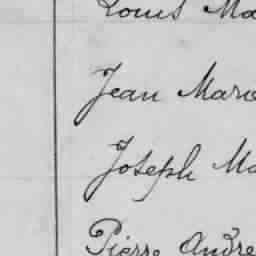 Louis Ma
Jean Marie
Joseph Ma
Pierre André